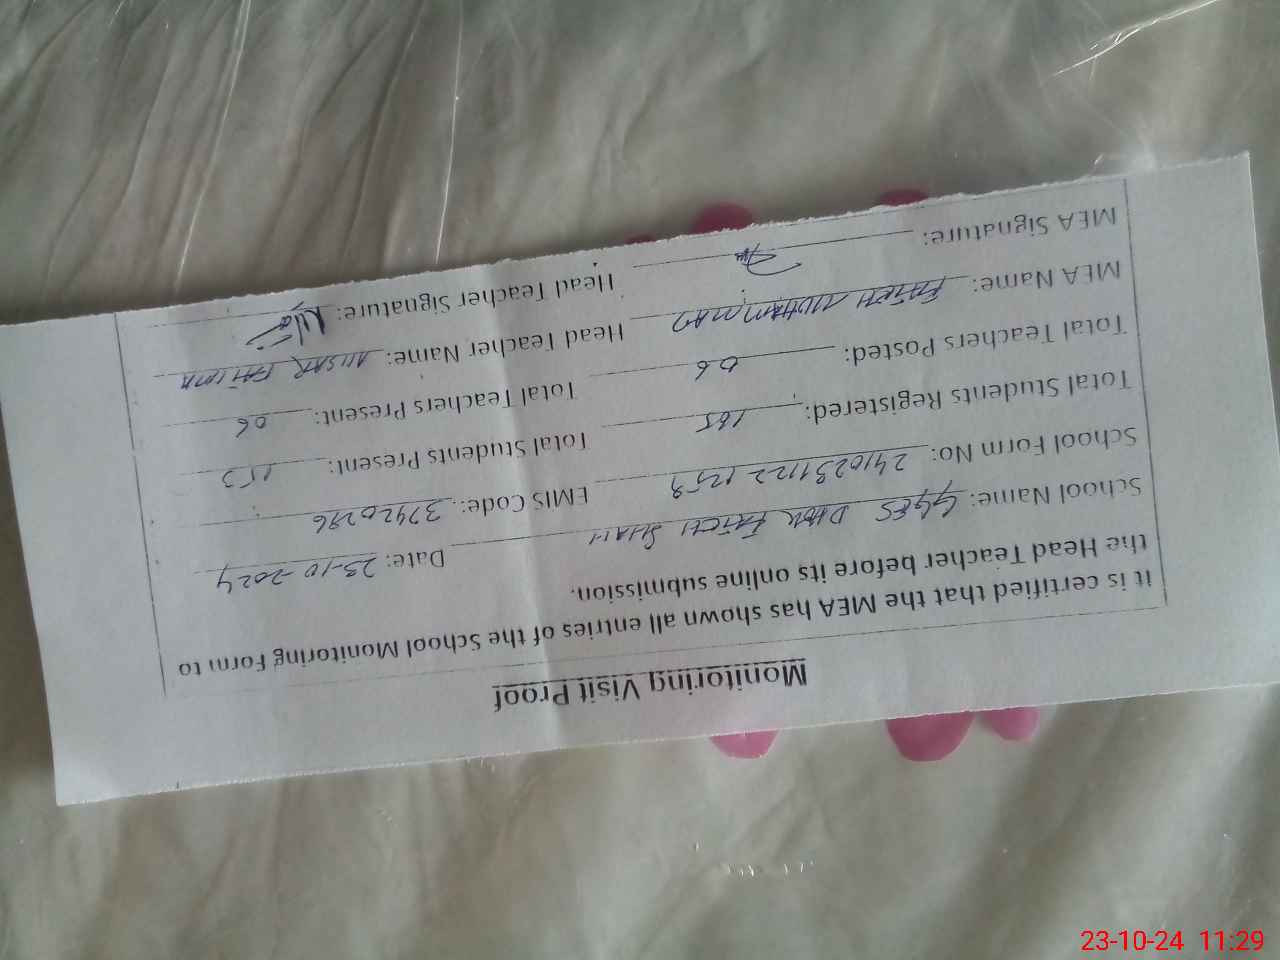 Monitoring Visit Proof
it is certified that the MEA has shown all entries of the School Monitoring Form to
the Head Teacher before its online submission.
School Name: GGES DHOK FATEH SHAH Date: 23-10-2024
School Form No: 2410231122 1259 EMIS Code: 37420296
Total Students Registered: 165 Total Students Present: 153
Total Teachers Posted: 06 Total Teachers Present: 06
MEA Name: FATEH MUHAMMAD Head Teacher Name: NISAR FATIMA
MEA Signature: Head Teacher Signature:
23-10-24 11:29